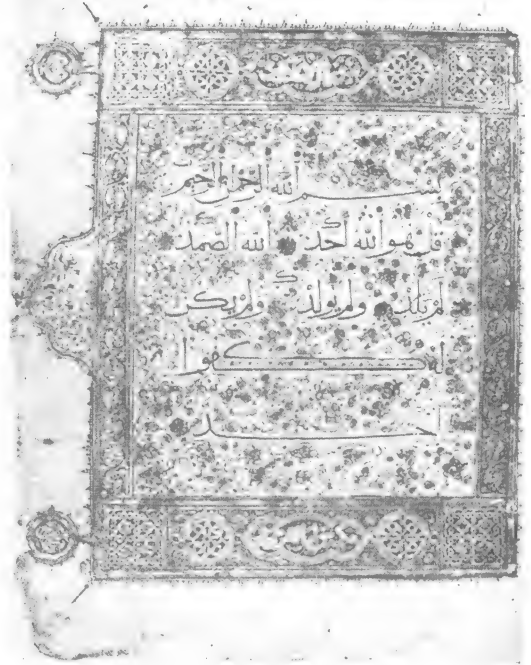 بسم الله الرحمن الرحيم
قل هو الله أحد الله الصمد
لم يلد ولم يولد ولم يكن
له كفوا
أحد